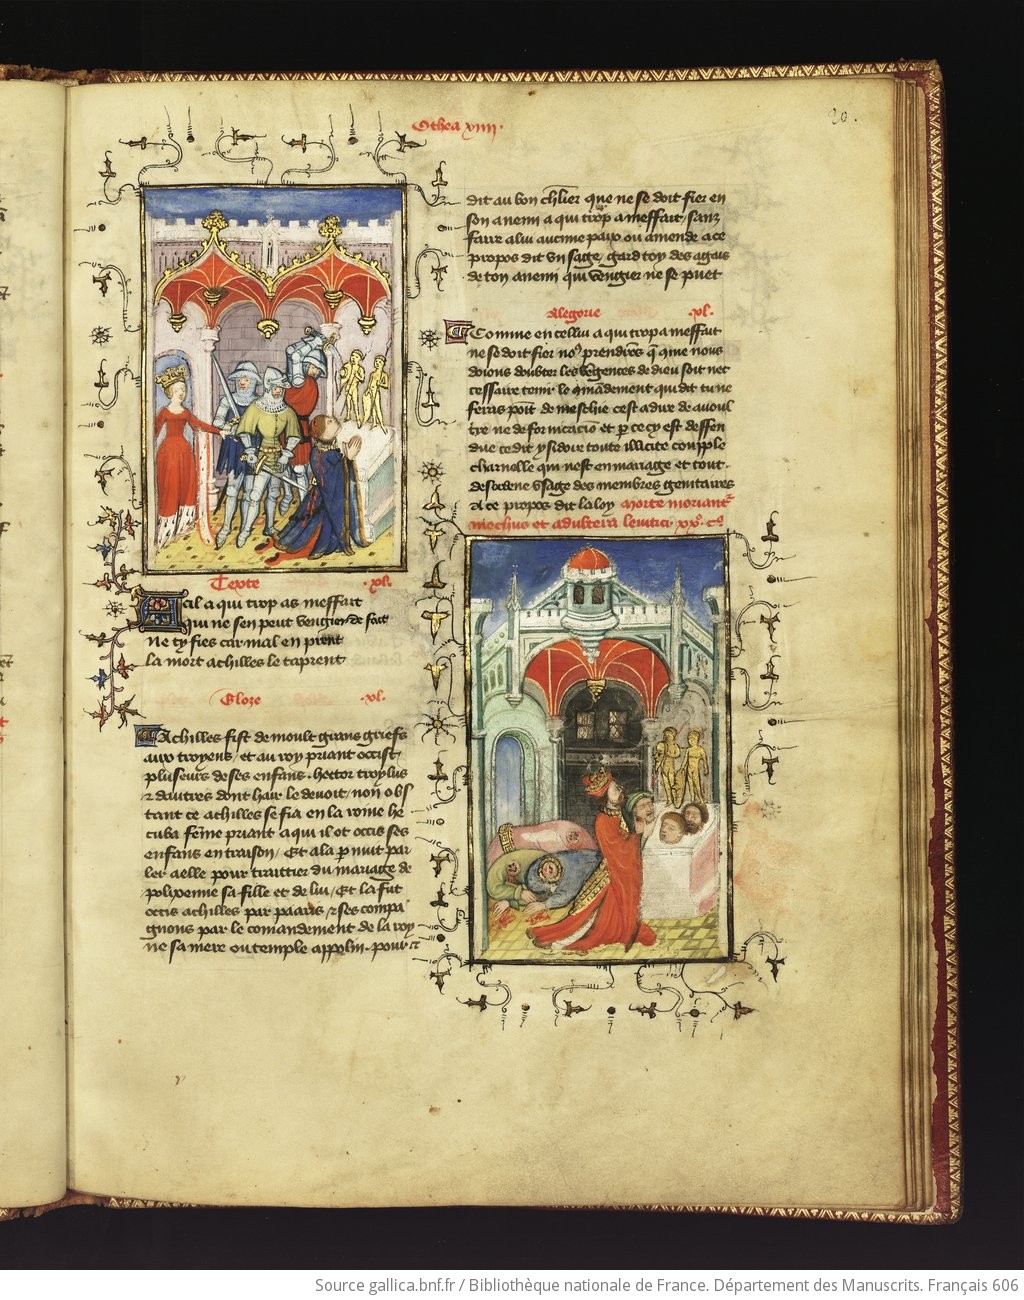 Othea xviiii.
20.
Texte .xl.
A cil a qui trop as meffait
qui ne sen peut vengier de fait
Ne ty fies car mal en prent
La mort achilles le taprent
Gloze .xl.
Achilles fist de moult grans griefs
aux troyens / et au roy priant occist
plusieurs de ses enfans. hector troylus
& dautres dont hair le devoit / non obs
tant ce achilles se fia en la roine he
cuba feme priant a qui il ot occis ses
enfans en traison / Et ala p nuit par
ler a elle pour traittier du mariage de
polixenne sa fille et de lui / Et la fut
occis achilles par paaris / & ses compa
gnons par le comandement de la roy
ne sa mere ou temple appolin. pour ce
dit au bon chlier que ne se doit fier en
son anemi a qui trop a meffait / sanz
faire a lui aucune paix ou amende a ce
propos dit un sage / gard toy des agais
de ton anemi qui vengier ne se puet
Alegorie .xl.
Comme en cellui a qui trop a meffait
ne se doit fier no9 prendros q que nous
doions doubter les vegences de dieu soit nec
cessaire tenir le comandement qui dit tu ne
feras poit de mechie cest a dire de avoul
tre ne de fornicacio et p ce cy est deffen
due ce dit ysidoire toute illicite coupple
charnelle qui nest en mariage et tout
desordene usage des membres genitaires
A ce propos dit la loy morte moriant
mechus et adultera levitici .xx. co
Source gallica.bnf.fr / Bibliothèque nationale de France. Département des Manuscrits. Français 606